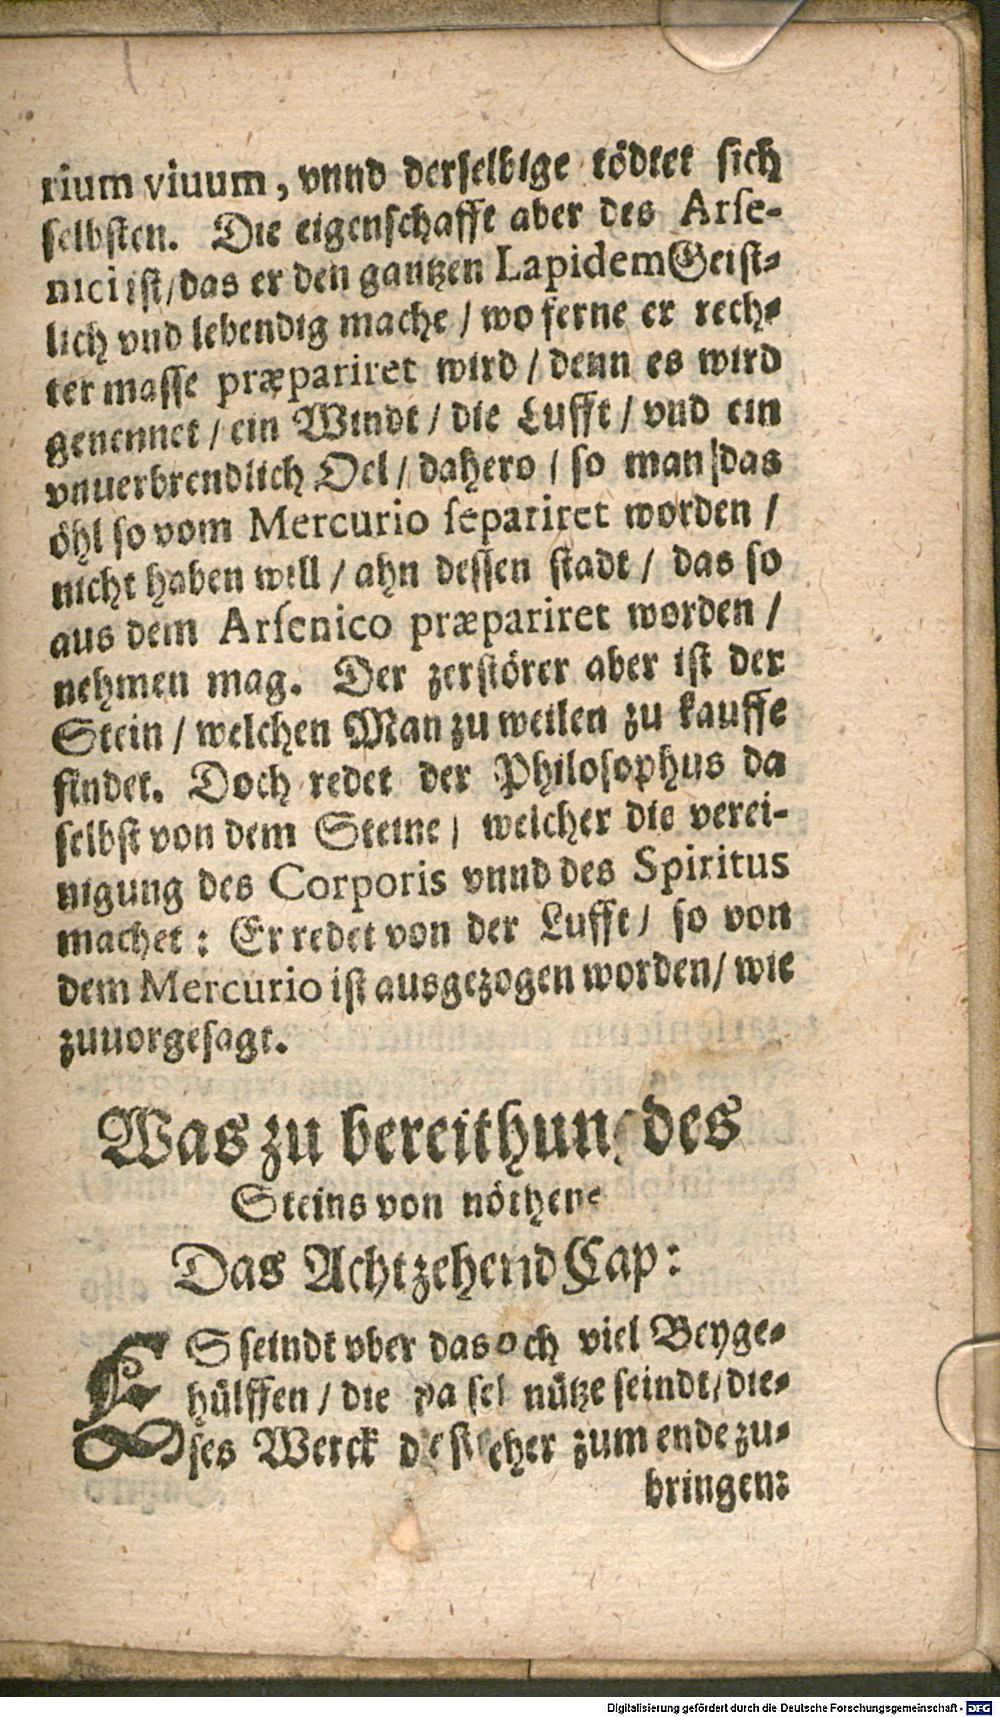 rium viuum, vnnd derselbige tödtet sich
selbsten. Die eigenschafft aber des Arse-
nici ist/das er den gantzen Lapidem Geist-
lich vnd lebendig mache / wo ferne er rech-
ter masse præpariret wird / denn es wird
genennet / ein Windt / die Lufft / vnd ein
vnuerbrendlich Oel / dahero / so man das
öhl so vom Mercurio separiret worden /
nicht haben will / ahn dessen stadt / das so
aus dem Arsenico præpariret worden /
nehmen mag. Der zerstörer aber ist der
Stein / welchen Man zu weilen zu kauffe
findet. Doch redet der Philosophus da
selbst von dem Steine / welcher die verei-
nigung des Corporis vnnd des Spiritus
machet : Er redet von der Lufft / so von
dem Mercurio ist ausgezogen worden / wie
zuuorgesagt.
Was zu bereithung des
Steins von nöthene
Das Achtzehend Cap:
ES seindt vber das och viel Beyge-
hülffen / die nütze seindt / die-
ses Werck eher zum ende zu-
bringen:
Digitalisierung gefördert durch die Deutsche Forschungsgemeinschaft - DFG